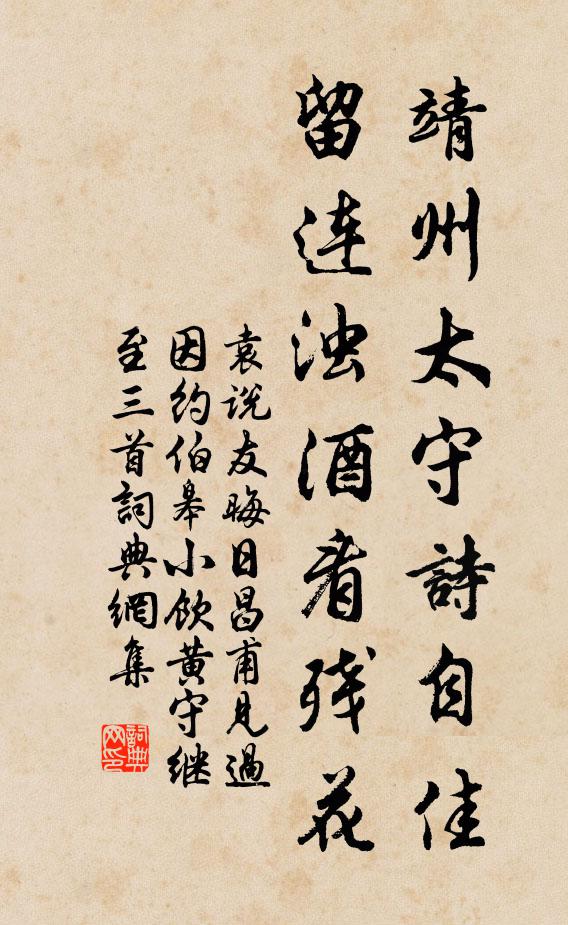 靖州太守詩自佳
留连浊酒看残花
袁说友晦日昌甫見過
因约伯皋小飲黄守继
至三首詞典網集
詞典网印